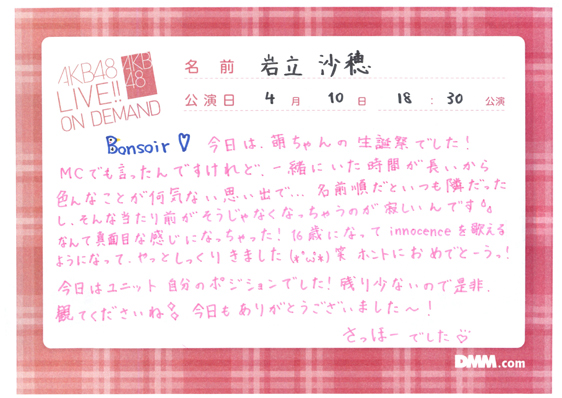 AKB48
LIVE!!
ON DEMAND
AKB
48
名 前 岩立 沙穂
公演日 4 月 10 日 18 : 30 公演
Bonsoir♡ 今日は、萌ちゃんの生誕祭でした!
MCでも言ったんですけれど、一緒にいた時間が長いから
色んなことが何気ない思い出で... 名前順だといつも隣だった
し、そんな当たり前がそうじゃなくなっちゃうのが寂しいんです
なんて真面目な感じになっちゃった! 16歳になって innocenceを歌える
ようになって、やっとしっくりきました (*'ω'*) 笑 ホントにおめでとーうっ!
今日はユニット自分のポジションでした! 残り少ないので是非、
観てくださいね 今日もありがとうございました〜!
さっほーでした♡
DMM.com